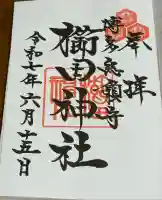 奉拝
博多總鎮守
櫛田神社
令和七年六月十五日